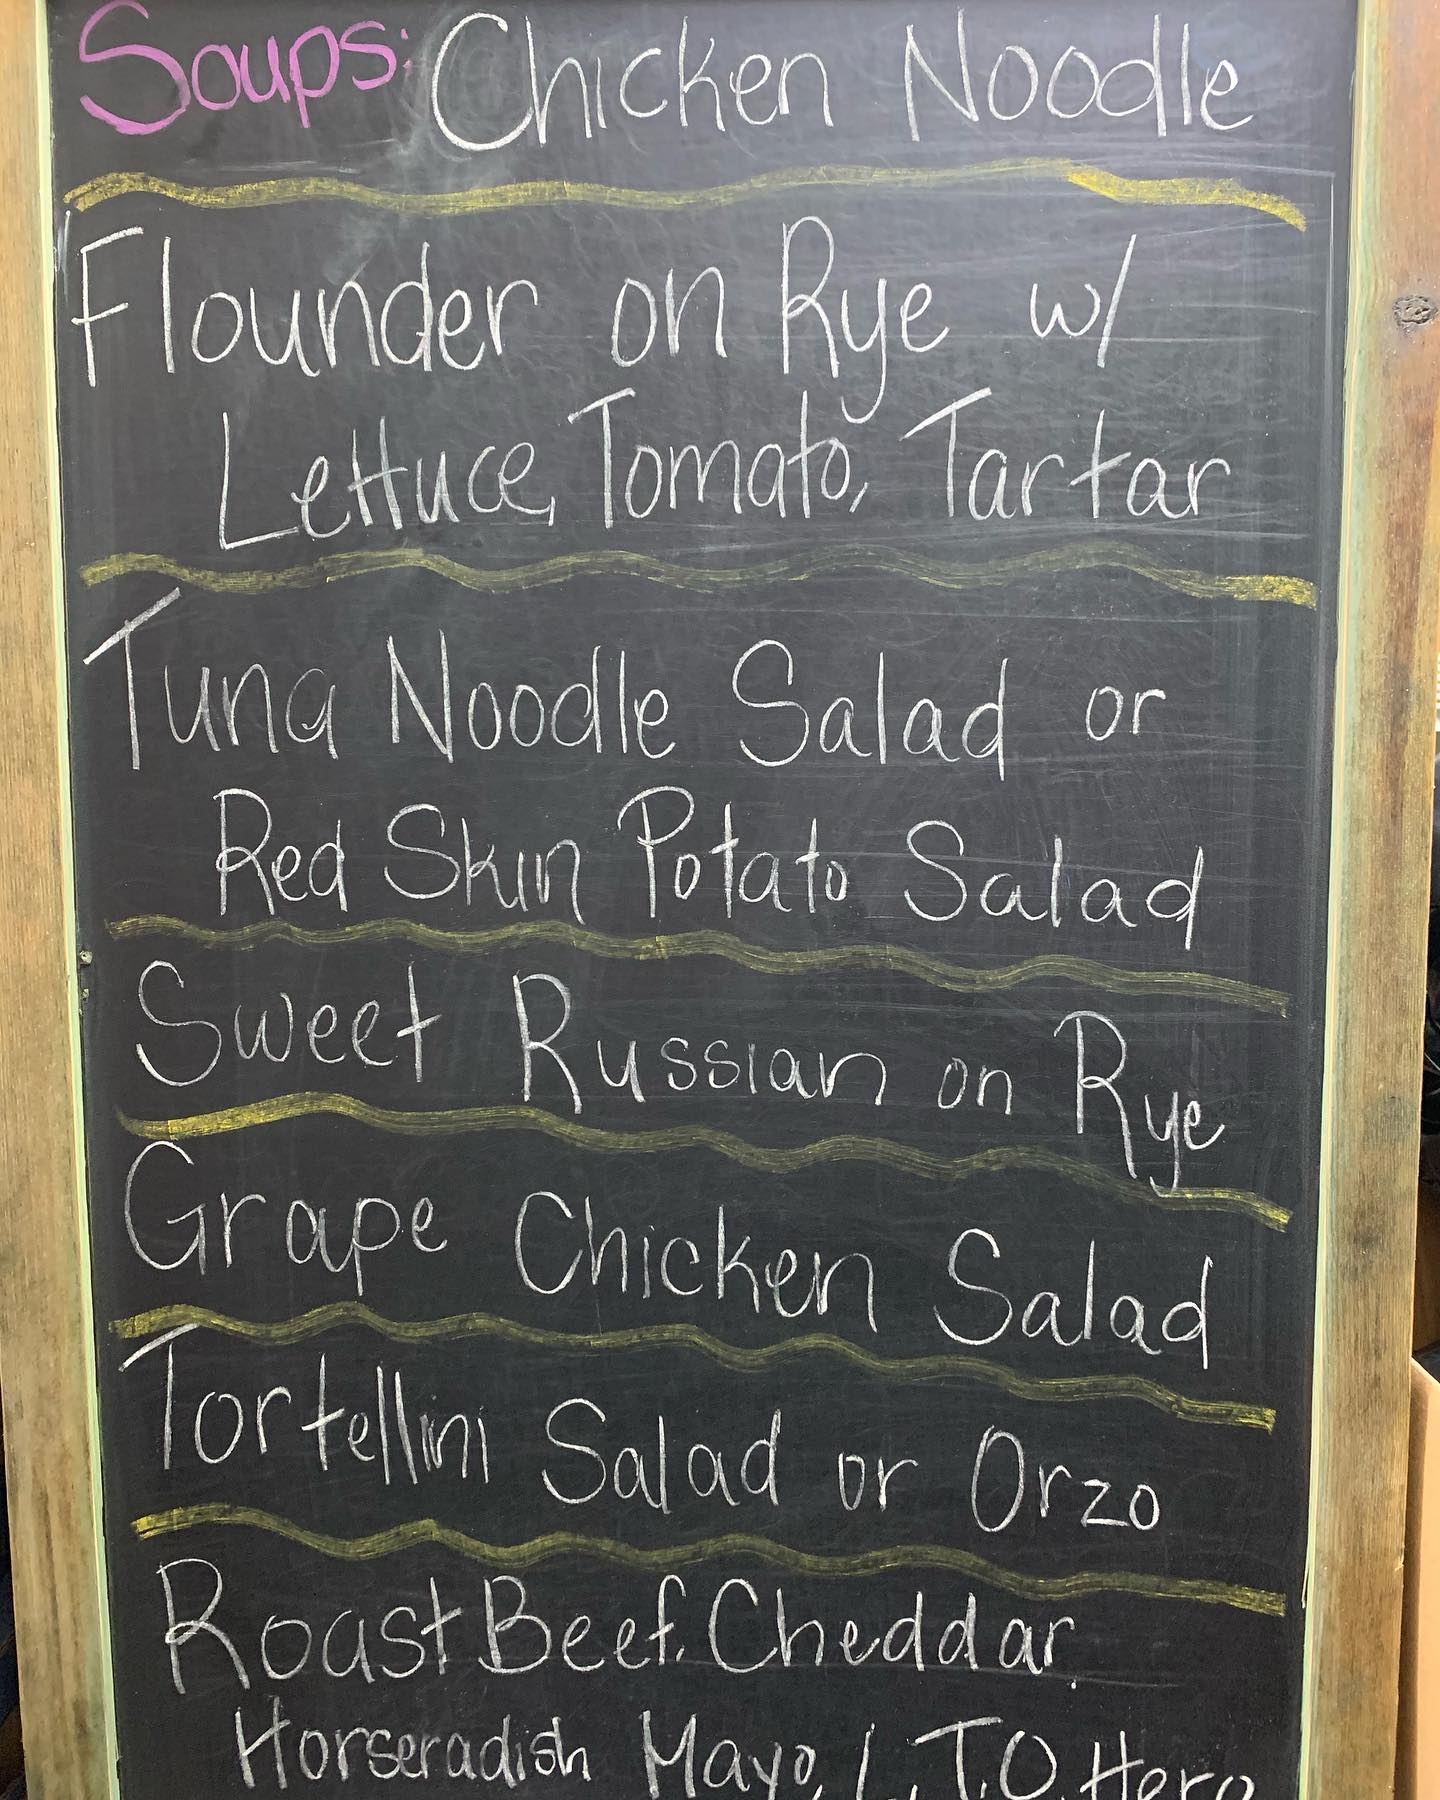 Soups: Chicken Noodle
Flounder on Rye w/
Lettuce, Tomato, Tartar
Tuna Noodle Salad or
Red Skin Potato Salad
Sweet Russian on Rye
Grape Chicken Salad
Tortellini Salad or Orzo
Roast Beef, Cheddar,
Horseradish Mayo, L, T, O, Hero